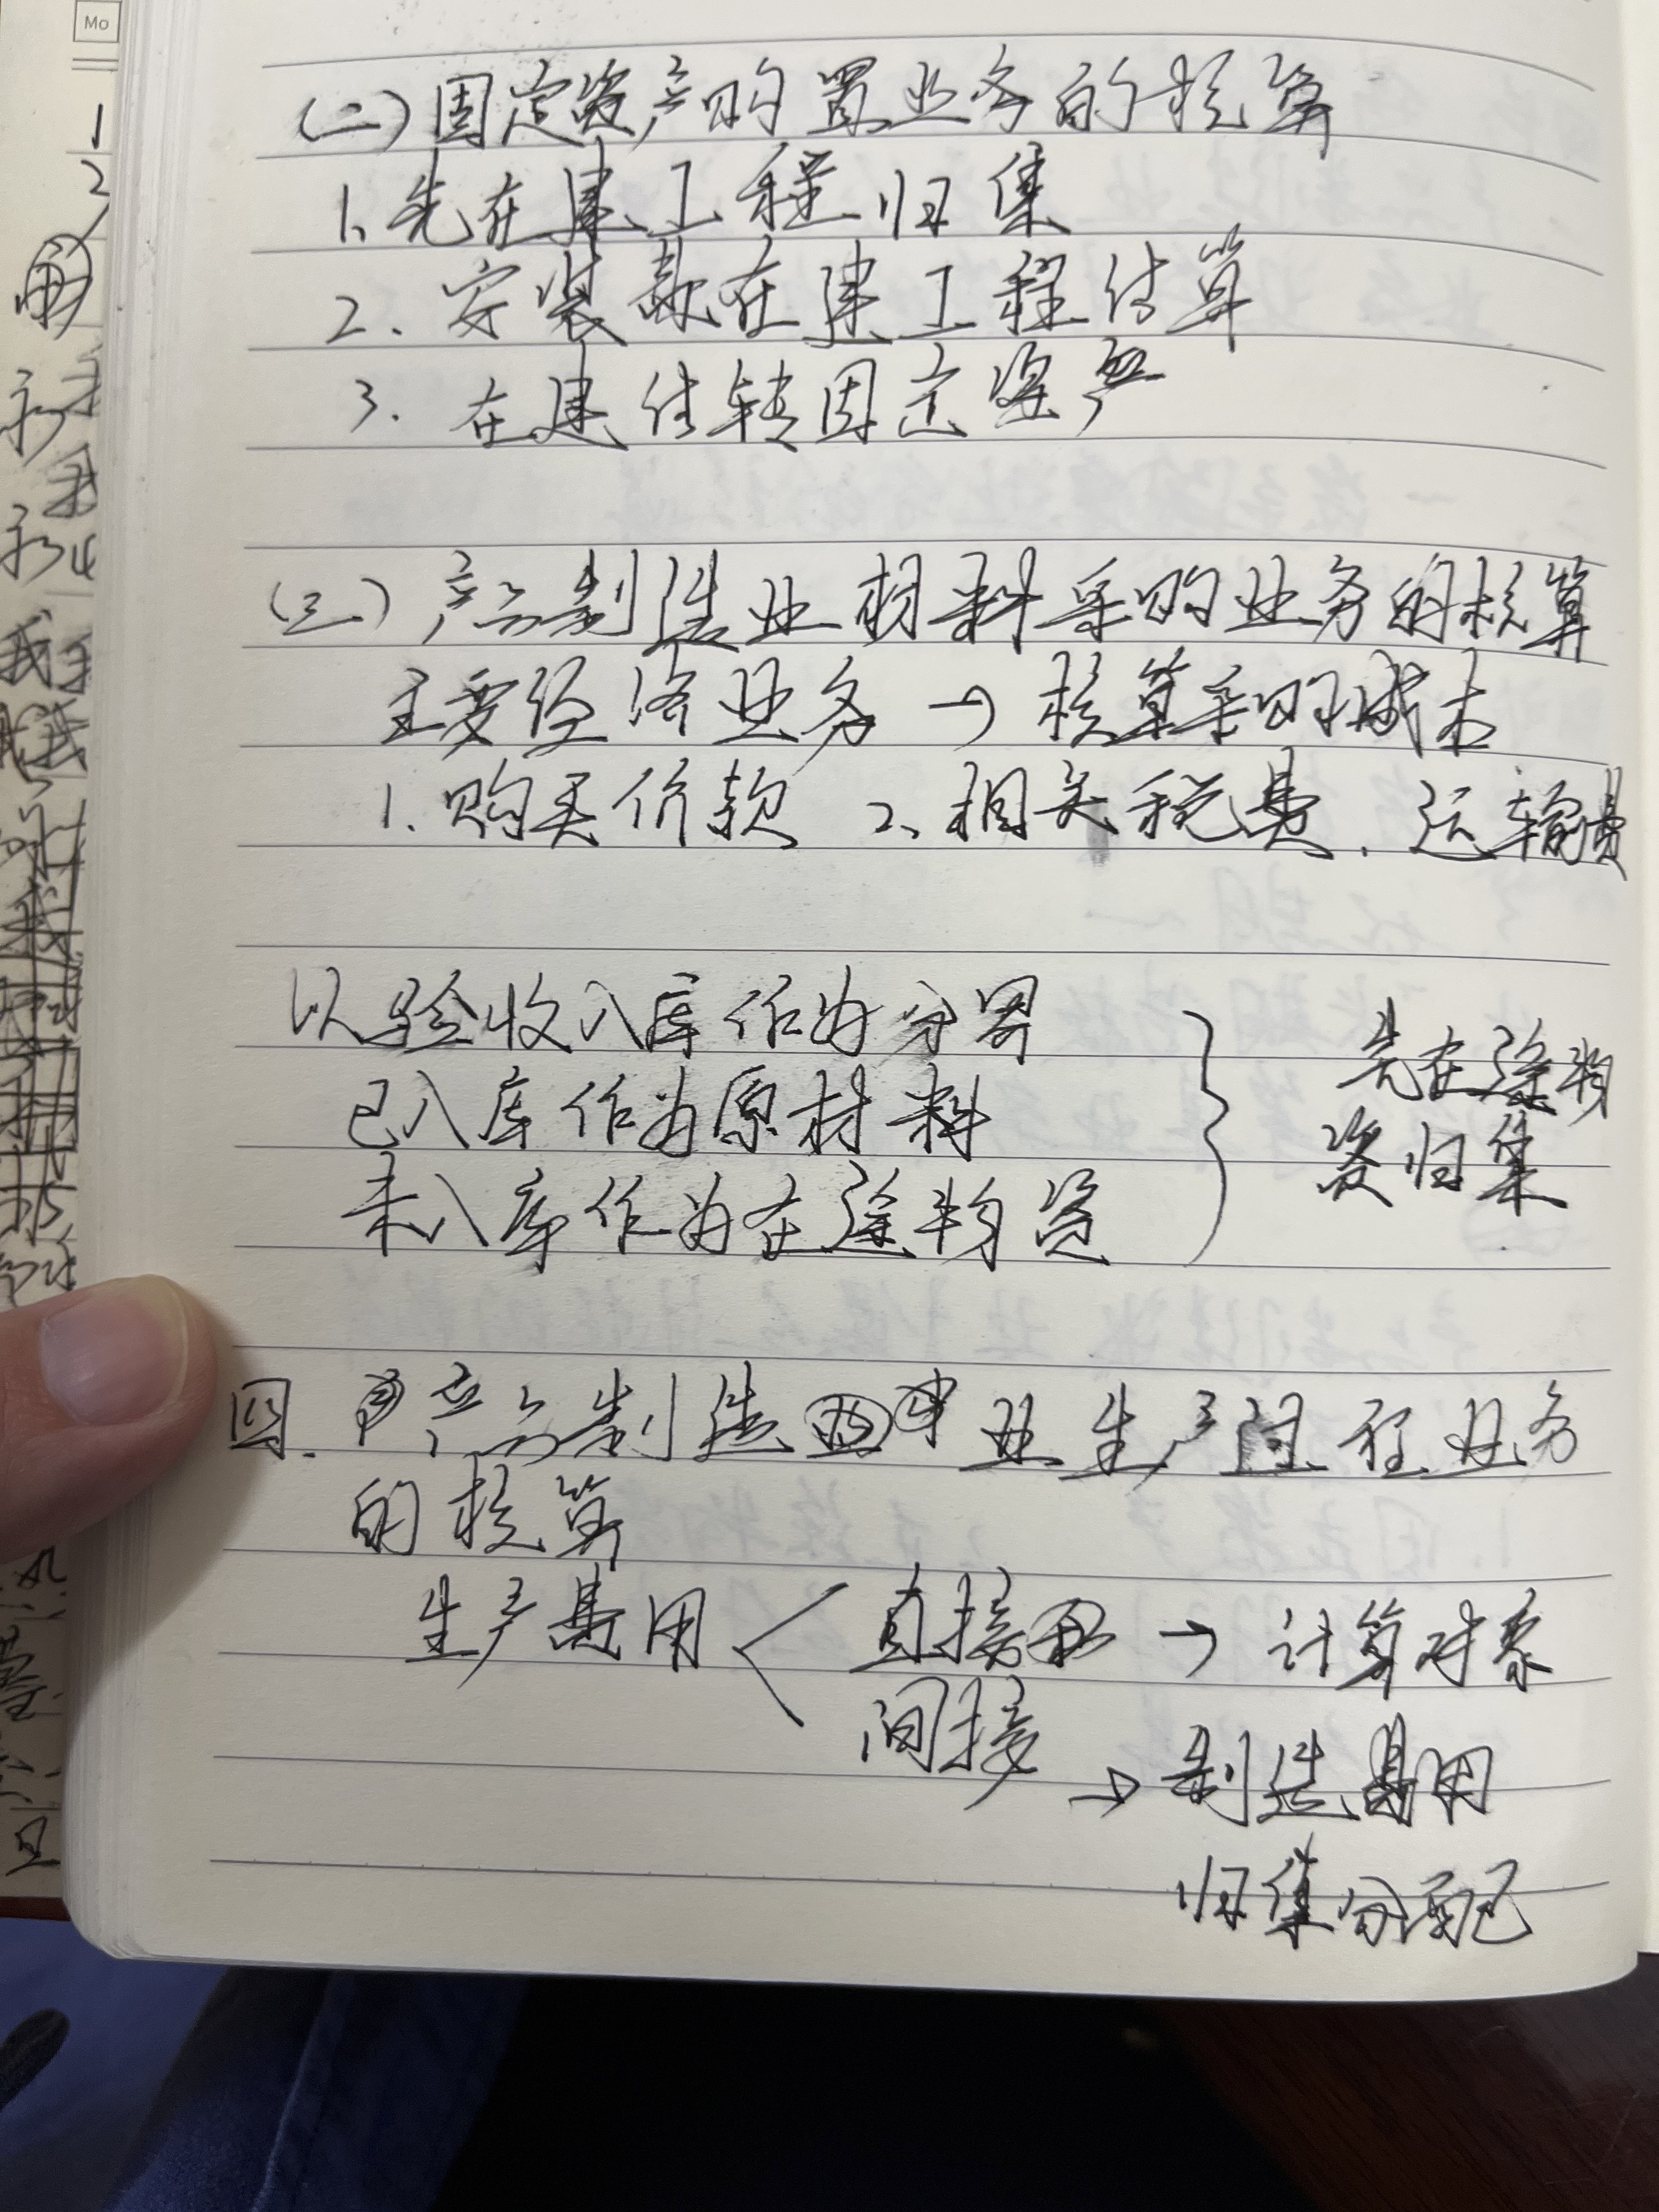 Mo
(二)固定资产购置业务的核算
1、先在建工程归集
2、安装款在建工程结算
3、在建结转固定资产
(三)产品制造业材料采购业务的核算
主要经济业务→核算采购成本
1、购买价款 2、相关税费、运输费
以验收入库作为分界
已入库作为原材料
未入库作为在途物资
先在途物
资归集
四、产品制造业生产过程业务
的核算
生产费用 直接 → 计算对象
间接
→制造费用
归集分配